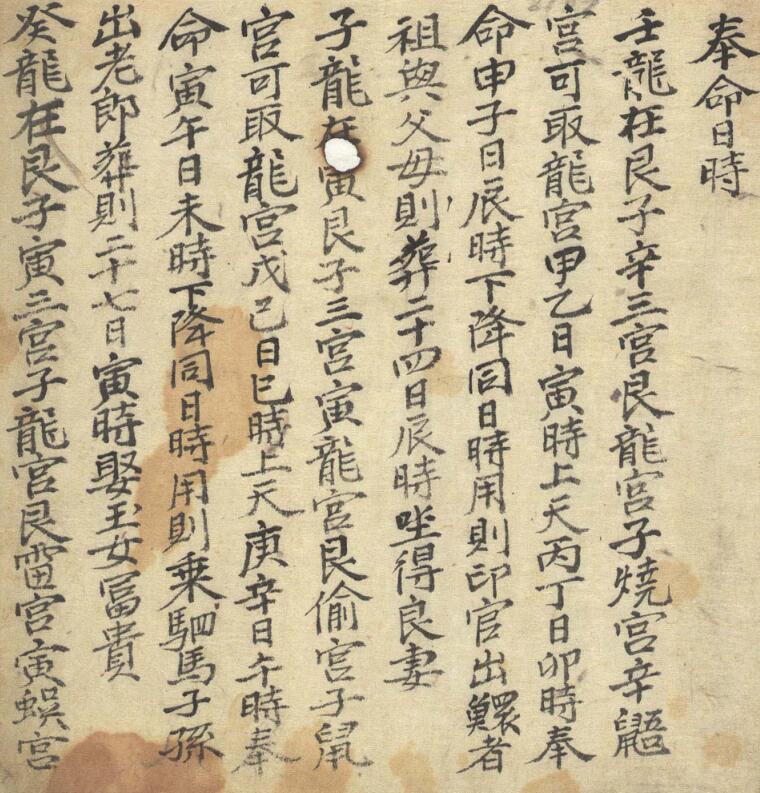 奉命日時
壬龍在艮子辛三宮艮龍宮子燒宮辛鼯
宮可取龍宮甲乙日寅時上天丙丁日卯時奉
命申子日辰時下降同日時用則印官出鰥者
祖與父母則葬二十四日辰時坐得良妻
子龍在寅艮子三宮寅龍宮艮偷宮子鼠
宮可取龍宮戊己日巳時上天庚辛日午時奉
命寅午日未時下降同日時用則乘駟馬子孫
出老郎葬則二十七日寅時娶玉女冨貴
癸龍在艮子寅三宮子龍宮艮雷宮寅蜈宮